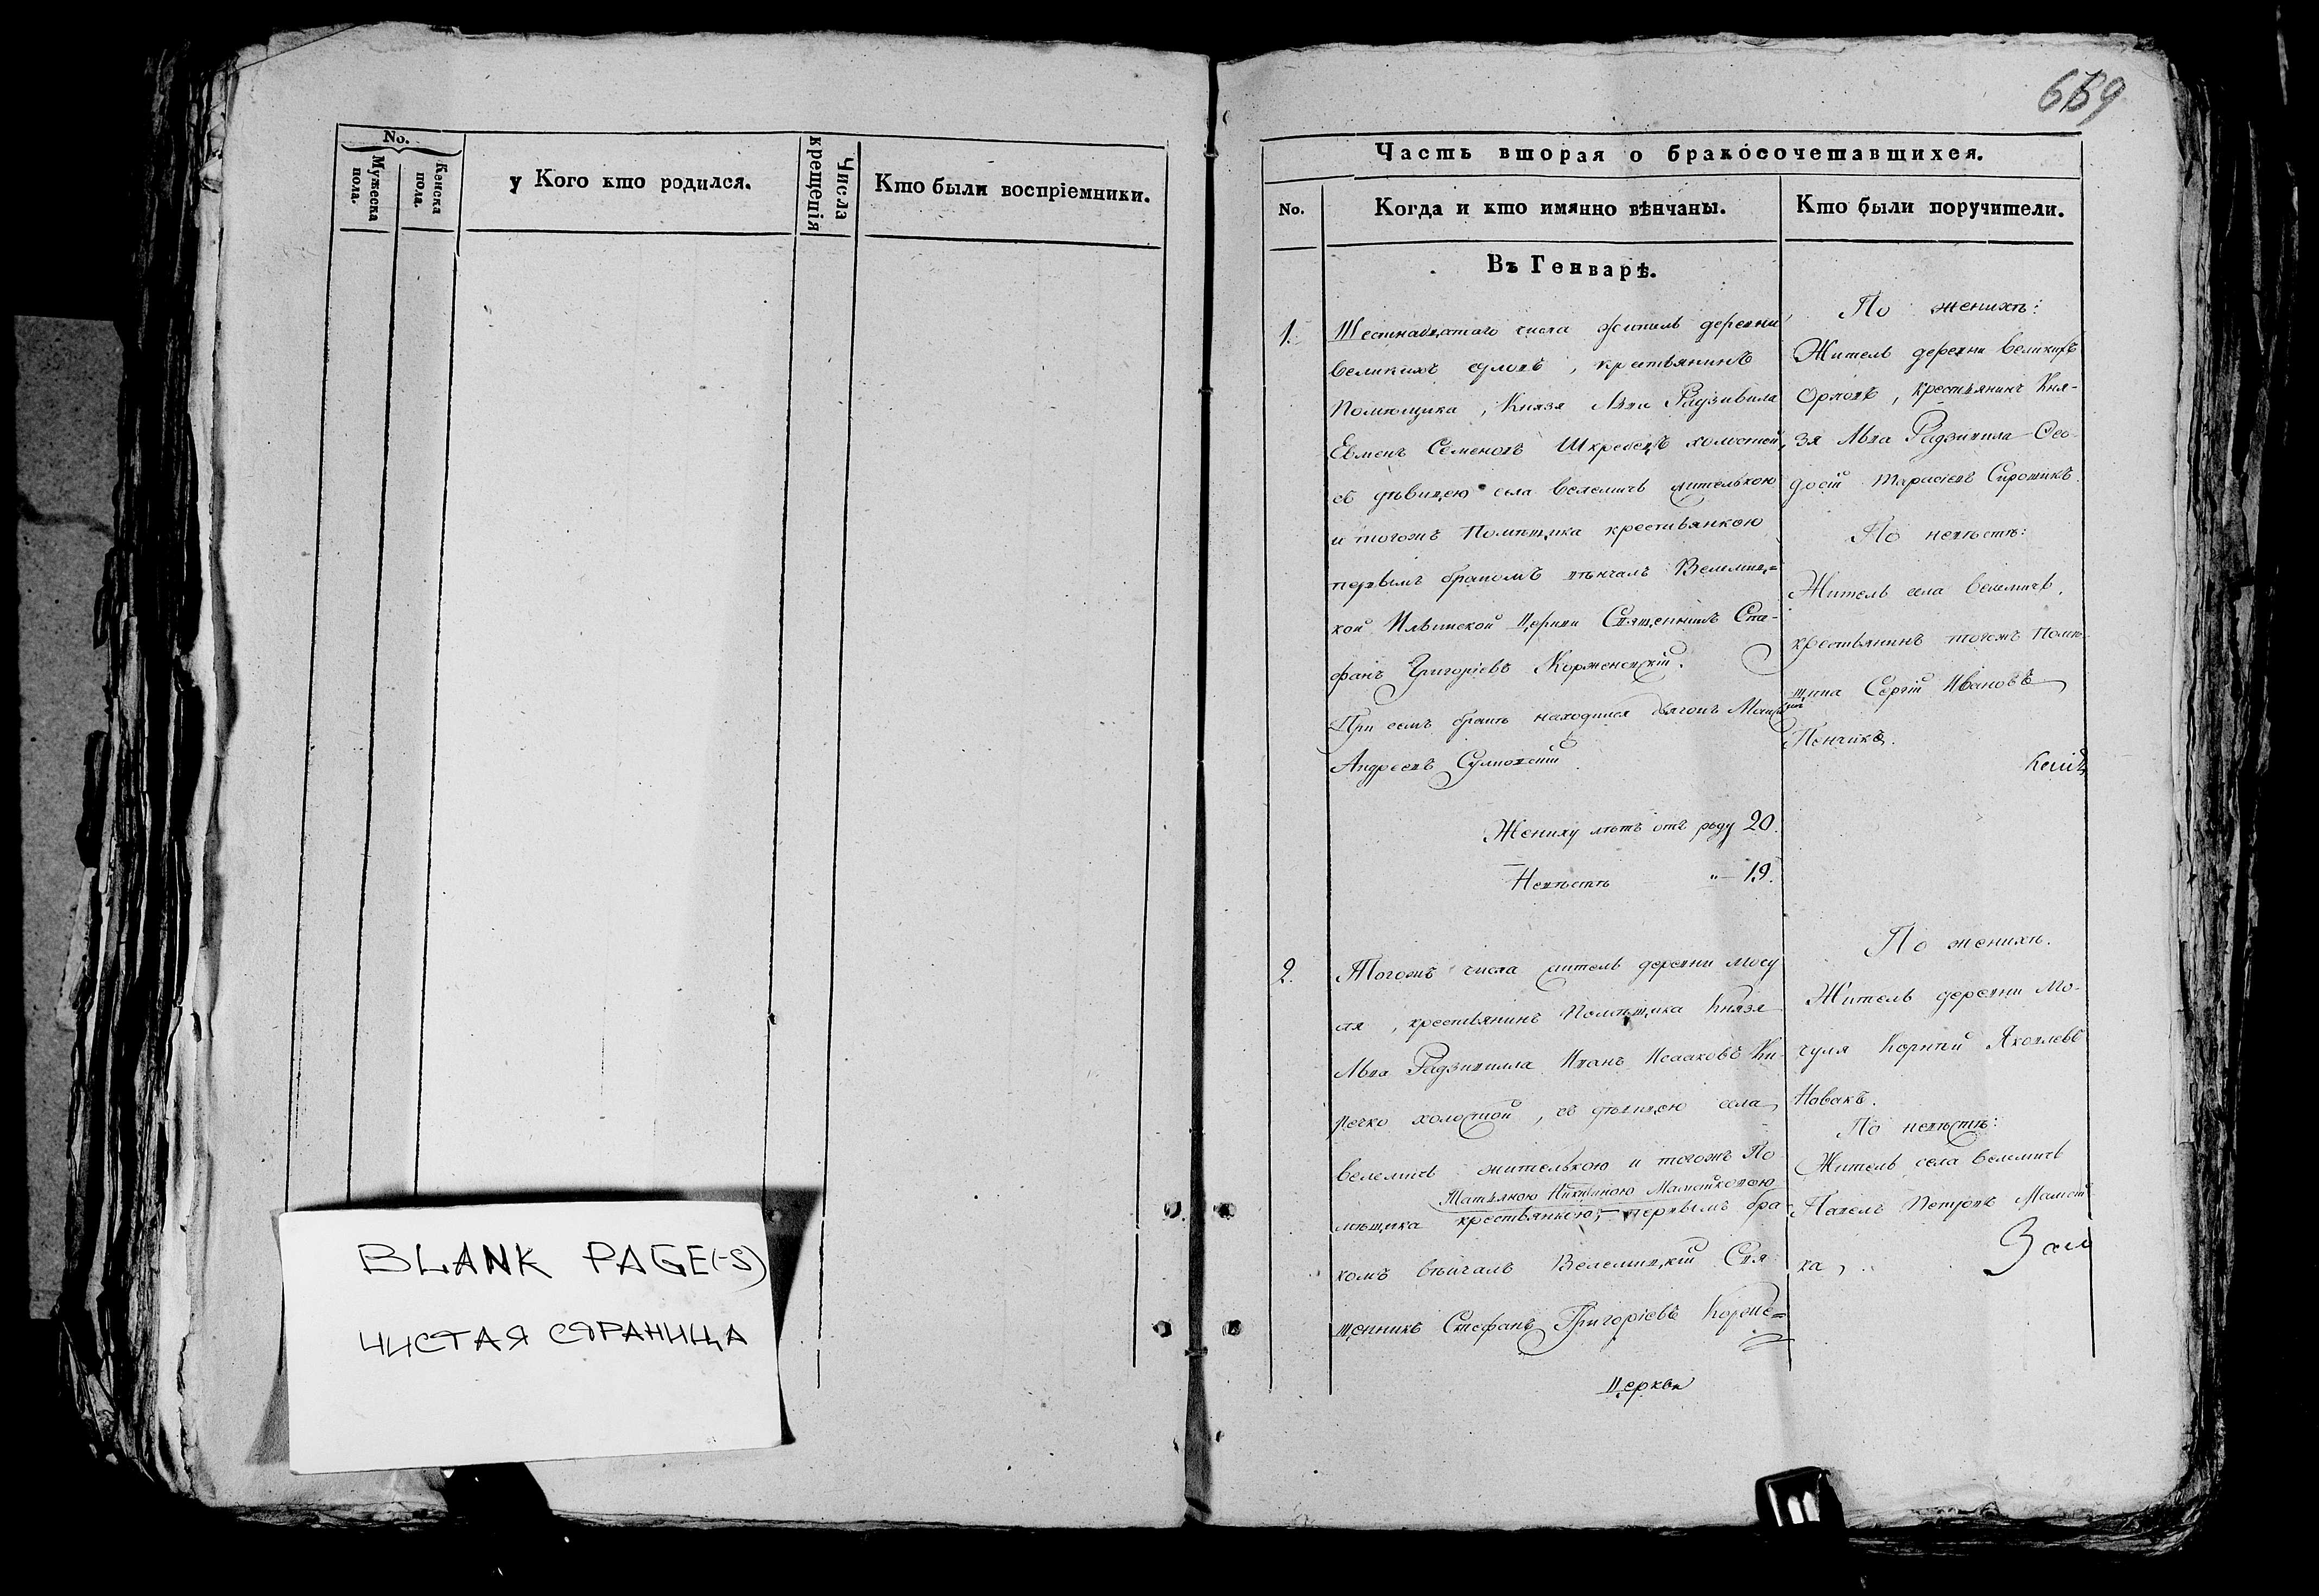 No.
Мужеска пола.
Женска пола.
у Кого кто родился.
Числа крещенія
Кто были воспріемники.
BLANK PAGE(-S)
ЧИСТАЯ СТРАНИЦА
Часть вторая о бракосочетавшихся.
No.
Когда и кто имянно вѣнчаны.
Кто были поручители.
Въ Генварѣ.
1.
Шестнадцатаго числа житель деревни
великихъ орловъ, крестьянинъ
Помѣщика, Князя Льва Радзивила
Евменъ Семеновъ холостой,
съ дѣвицею села Велемичъ жителькою
и тогожъ Помѣщика крестьянкою
первымъ бракомъ вѣнчалъ Велемиц=
кой Ильинской Церкви Священникъ Сте-
фанъ Григоріевъ Корженевскій.
При семъ бракѣ находился дьячокъ
Андреевъ
Жениху лѣтъ отъ роду 20.
Невѣстѣ "— 19.
По женихѣ:
Житель деревни великихъ
Орловъ, крестьянинъ Кня-
зя Льва Радзивила Ѳео-
досій Тарасіевъ Сиротикъ.
По невѣстѣ:
Житель села Велемичъ,
крестьянинъ тогожъ Помѣ-
щика Сергій Ивановъ
Пенчикъ.
2.
Тогожъ числа житель деревни мочу
ля, крестьянинъ Помѣщика Князя
Льва Радзивилла Иванъ Исааковъ Ки-
речко холостой, съ дѣвицею села
Велемичъ жителькою и тогожъ По
Татьяною Никитиною
мѣщика крестьянкою, первымъ бра
комъ вѣнчалъ Велемицкій Свя-
щенникъ Стефанъ Григоріевъ Корже=
Церкви
По женихѣ.
Житель деревни Мо-
чуля Корнѣй Яковлевъ
Новакъ.
По невѣстѣ:
Житель села Велемичъ
Павелъ Петровъ Мамай
ка,